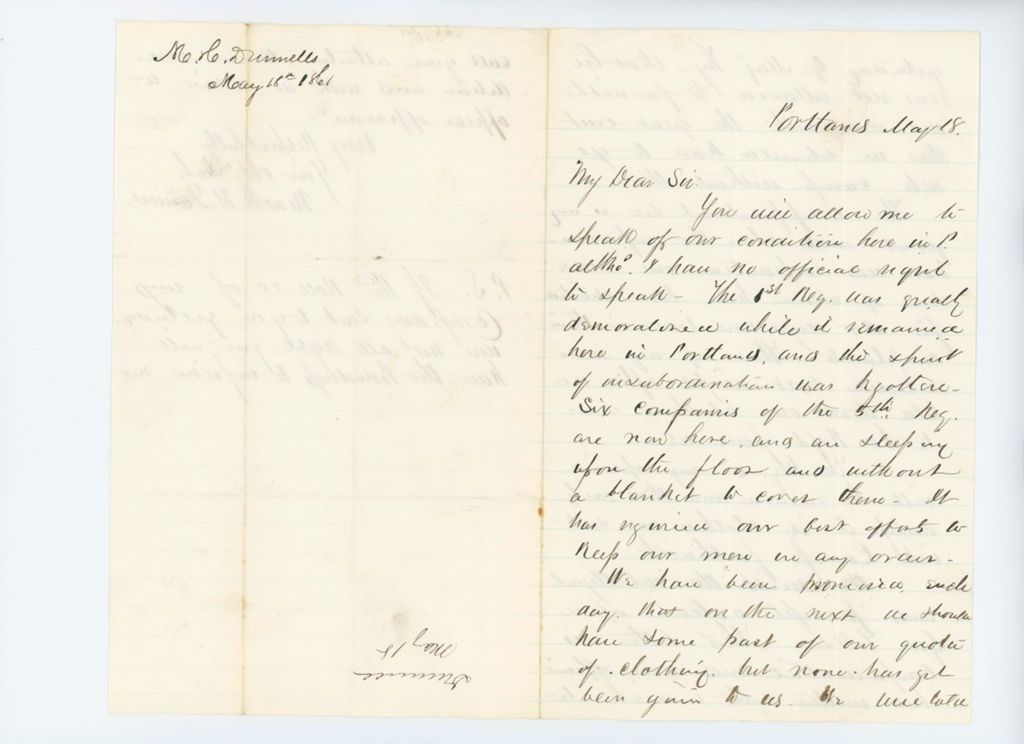 M. H. Dunnells
May 18th 1861
Portland May 18.
My Dear Sir:
You will allow me to
speak of our condition here in P.
altho. I have no official right
to speak - The 1st Reg. was greatly
demoralized while it remained
here in Portland, and the spirit
of insubordination was begotten -
Six companies of the 5th Reg.
are now here, and are sleeping
upon the floor and without
a blanket to cover them - It
has required our best efforts to
keep our men in any order -
We have been promised each
day, that on the next we should
have some part of our quota
of clothing, but none has yet
been given to us - We
Dunnell
May 18